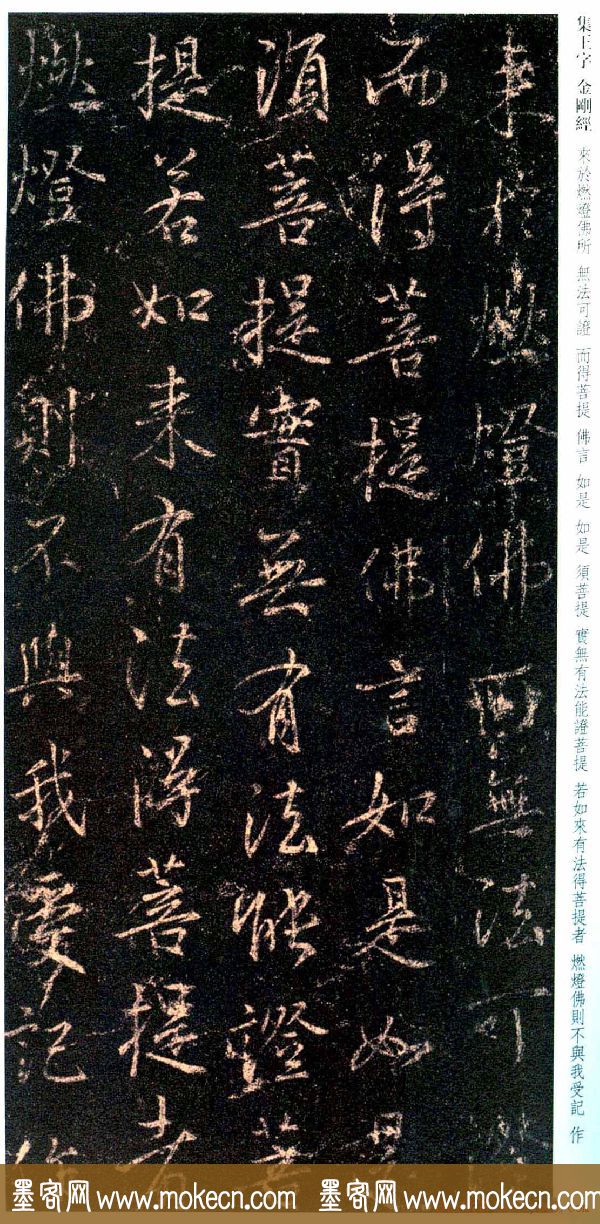 集王字 金剛經 來於燃燈佛所 無法可證 而得菩提 佛言 如是 如是 須菩提 實無有法能證菩提 若如來有法得菩提者 燃燈佛則不與我受記 作
来於燃燈佛所無法可證
而得菩提佛言如是如是
須菩提實無有法能證菩
提若如来有法得菩提者
燃燈佛則不與我受記作
墨客网 www.mokecn.com 墨客网 www.mokecn.com